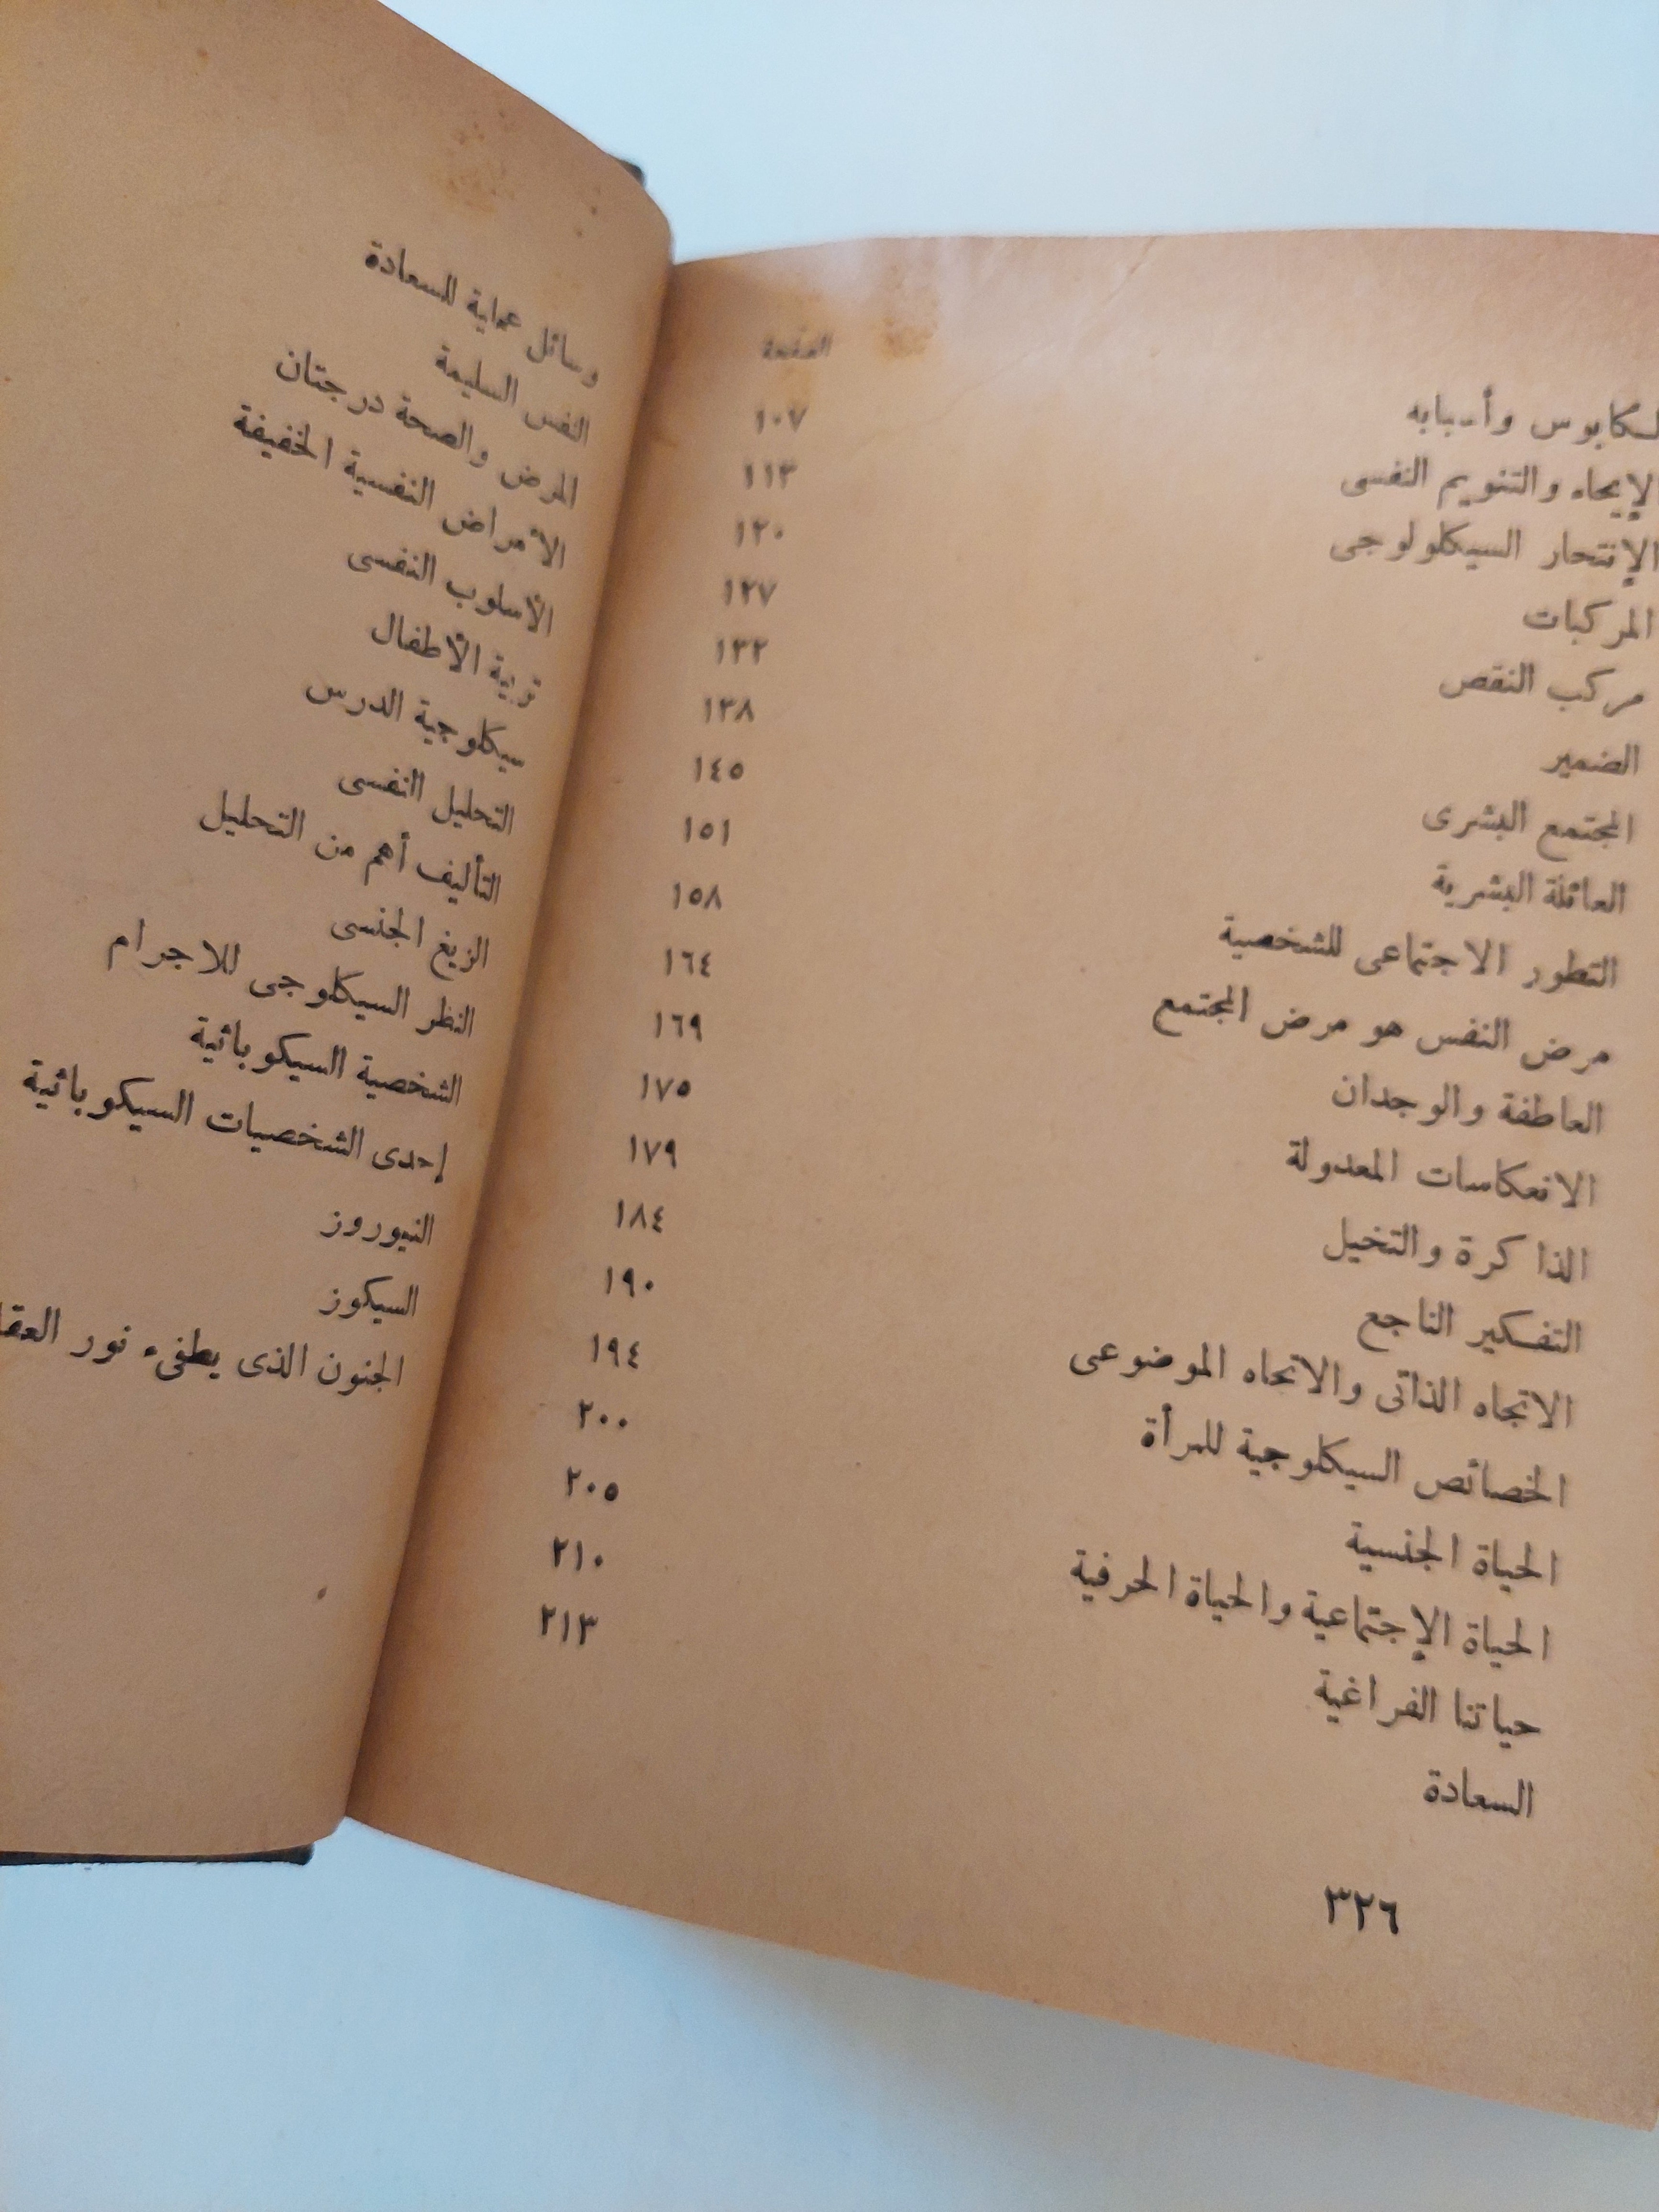 الصفحة
لكابوس وأسبابه ١٠٧
الإيحاء والتنويم النفسى ١١٣
الإنتحار السيكلولوجى ١٢٠
المركبات ١٢٧
مركب النقص ١٣٢
الضمير ١٣٨
المجتمع البشرى ١٤٥
العائلة البشرية ١٥١
التطور الاجتماعى للشخصية ١٥٨
مرض النفس هو مرض المجتمع ١٦٤
العاطفة والوجدان ١٦٩
الانعكاسات المعدولة ١٧٥
الذاكرة والتخيل ١٧٩
التفكير الناجع ١٨٤
الاتجاه الذاتى والاتجاه الموضوعى ١٩٠
الخصائص السيكلوجية للمرأة ١٩٤
الحياة الجنسية ٢٠٠
الحياة الإجتماعية والحياة الحرفية ٢٠٥
حياتنا الفراغية ٢١٠
السعادة ٢١٣
٣٢٦
وسائل عملية للسعادة
النفس السليمة
المرض والصحة درجتان
الأمراض النفسية الخفيفة
الأسلوب النفسى
تربية الأطفال
سيكلوجية الدرس
التحليل النفسى
التأليف أهم من التحليل
الزيغ الجنسى
النظر السيكلوجى للاجرام
الشخصية السيكوباثية
إحدى الشخصيات السيكوباثية
النيوروز
السيكوز
الجنون الذى يطفىء نور العقل